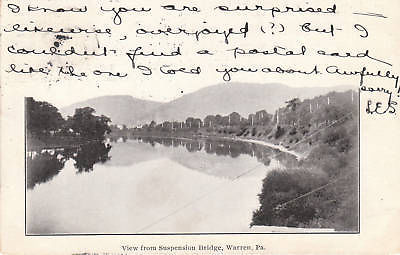 I know you are surprised -
likewise, overjoyed (?) But I
couldn't find a postal card
like the one I told you about Awfully
sorry!
L.E.S.
View from Suspension Bridge, Warren, Pa.